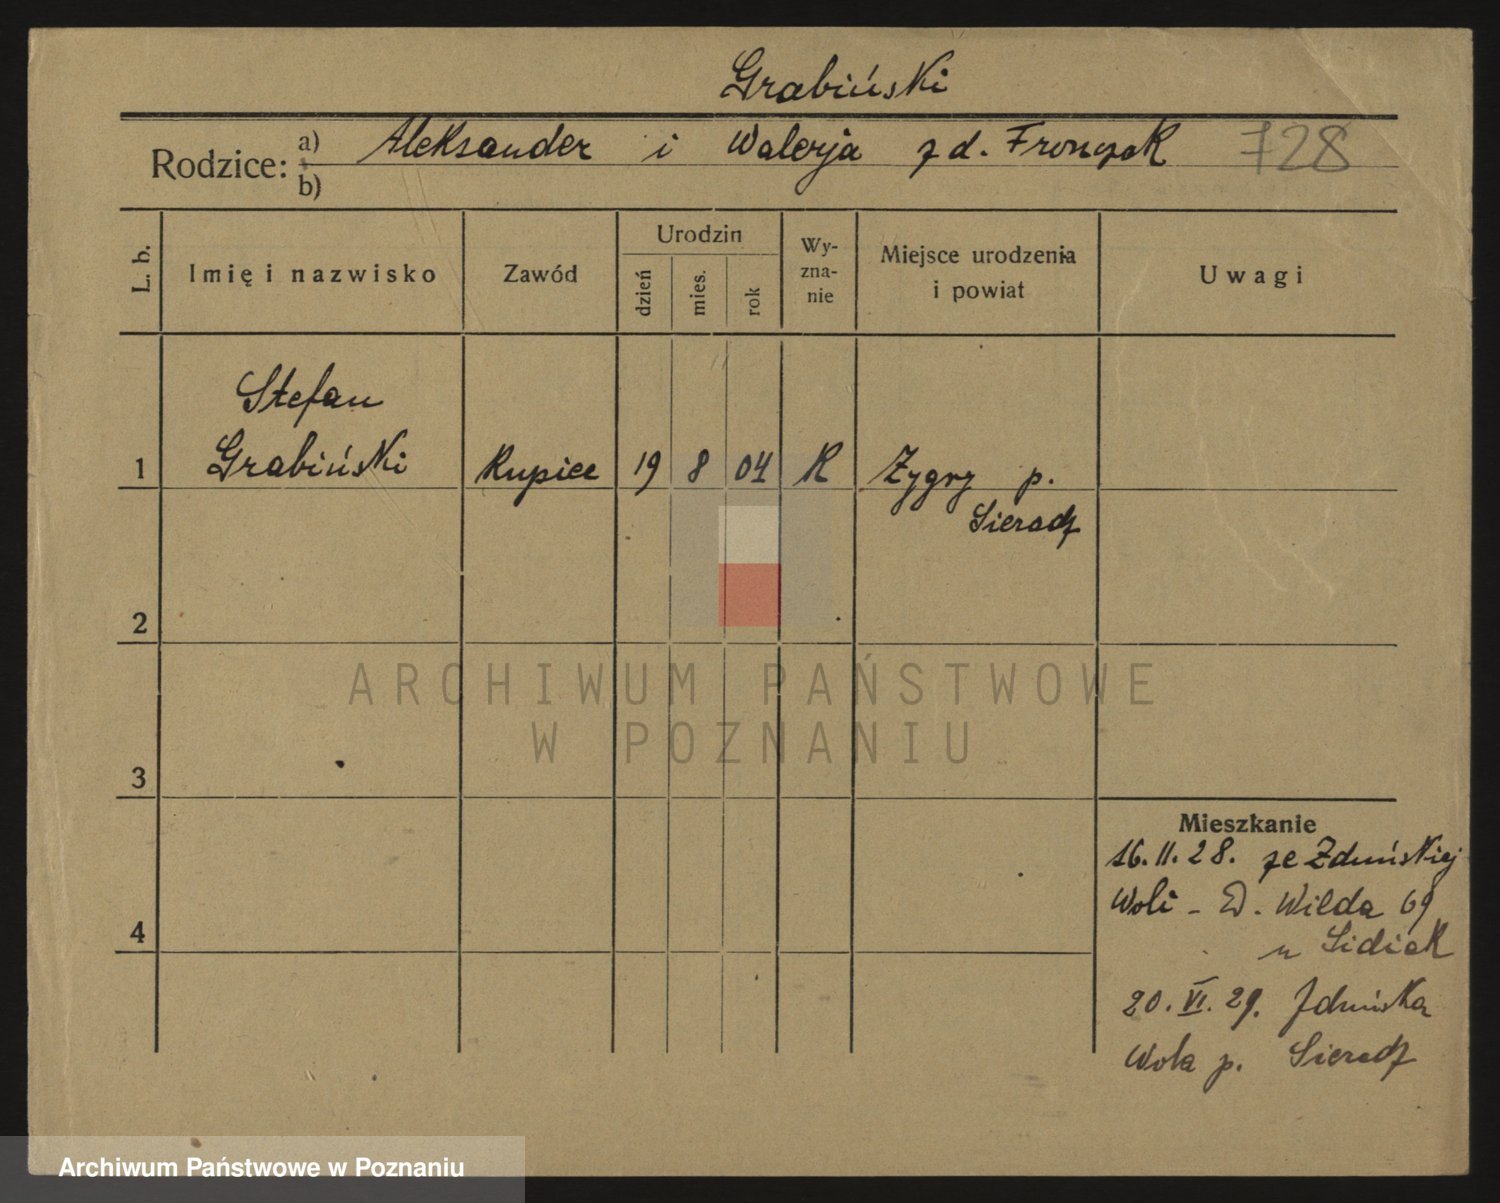 Grabiński
Rodzice: a) Aleksander i Walerja z d. Fronczak 728
b)
L. b. Imię i nazwisko Zawód Urodzin dzień mies. rok Wy-zna-nie Miejsce urodzenia i powiat Uwagi
Stefan
1 Grabiński Kupiec 19 8 04 K Zygry p.
Sieradz
2
ARCHIWUM PAŃSTWOWE
W POZNANIU
3
Mieszkanie
16. 11. 28. ze Zduńskiej
Woli - D. Wilda 69
4
20. VI. 29. Zduńska
Wola p. Sieradz
Archiwum Państwowe w Poznaniu